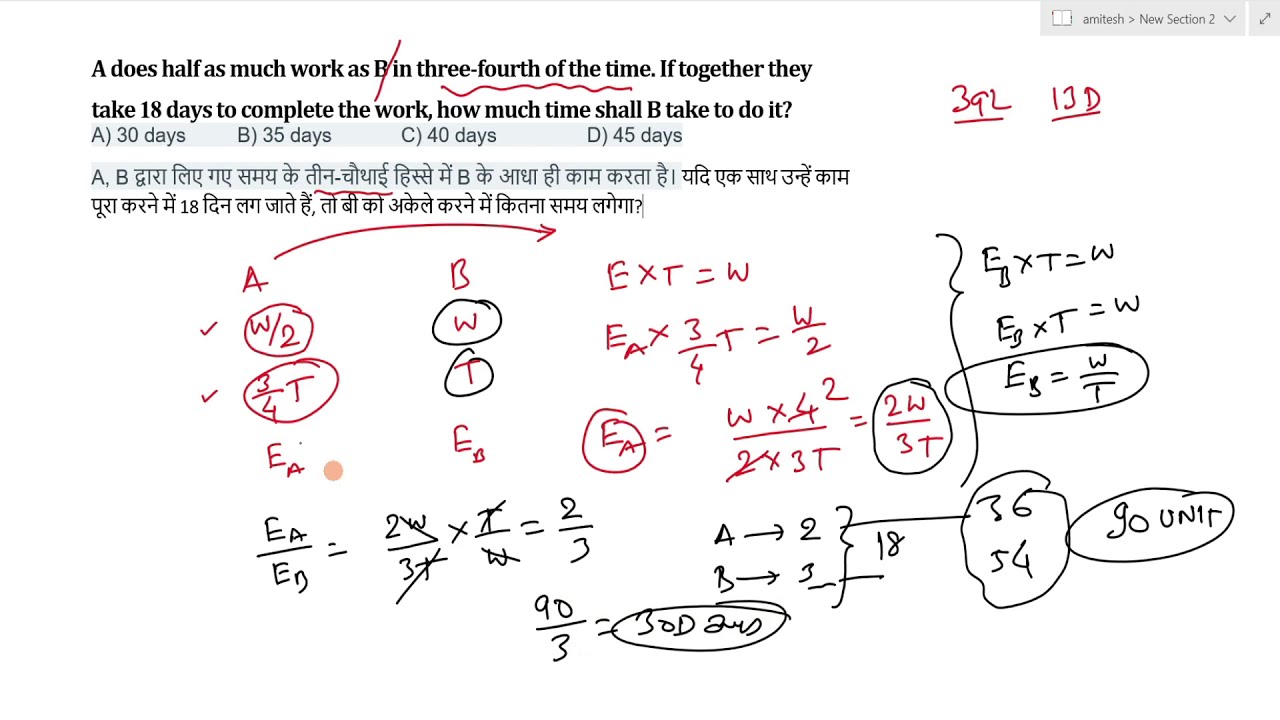 amitesh > New Section 2
A does half as much work as B in three-fourth of the time. If together they
take 18 days to complete the work, how much time shall B take to do it?
A) 30 days B) 35 days C) 40 days D) 45 days
A, B द्वारा लिए गए समय के तीन-चौथाई हिस्से में B के आधा ही काम करता है। यदि एक साथ उन्हें काम
पूरा करने में 18 दिन लग जाते हैं, तो बी को अकेले करने में कितना समय लगेगा?
A B E × T = W
W/2 W E_A × 3/4 T = W/2
3/4 T T E_A = W × 4 2 / 2 × 3T = 2W / 3T
E_A E_B
E_B × T = W
E_B × T = W
E_B = W/T
E_A / E_B = 2W / 3T × T / W = 2/3
A → 2 18 36 90 UNIT
B → 3 54
90/3 = 30 Days